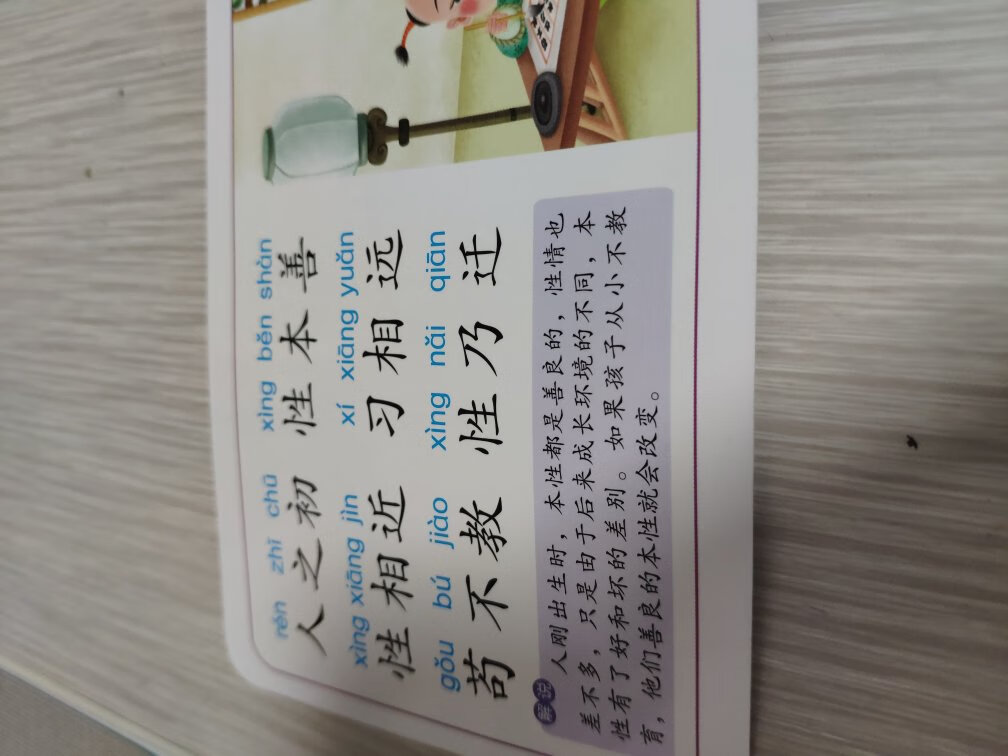 rén zhī chū xìng běn shàn
人之初 性本善
xìng xiāng jìn xí xiāng yuǎn
性相近 习相远
gǒu bú jiào xìng nǎi qiān
苟不教 性乃迁
解说
人刚出生时，本性都是善良的，性情也
差不多，只是由于后来成长环境的不同，本
性有了好和坏的差别。如果孩子从小不教
育，他们善良的本性就会改变。